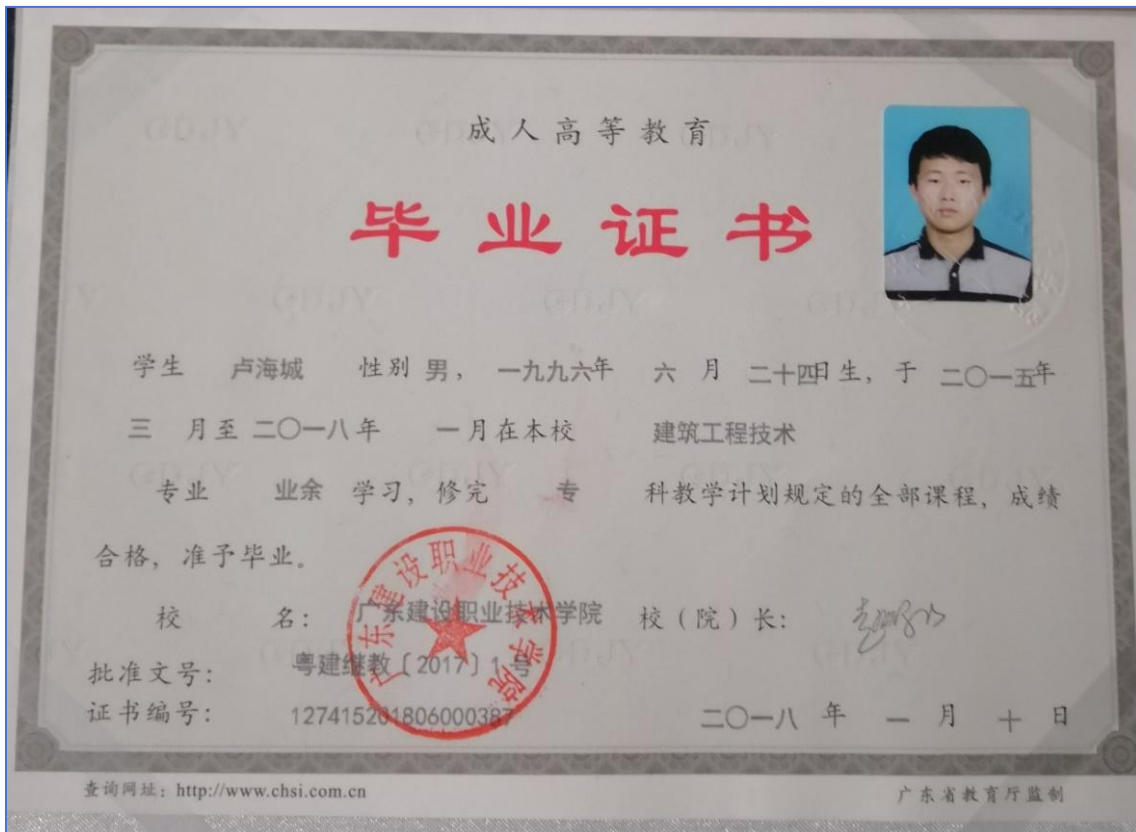 成人高等教育
毕业证书
学生 卢海城 性别 男, 一九九六年 六 月 二十四日生, 于 二〇一五年
三 月至 二〇一八年 一月在本校 建筑工程技术
专业 业余 学习, 修完 专 科教学计划规定的全部课程, 成绩
合格, 准予毕业。
校 名: 广东建设职业技术学院 校(院)长:
批准文号: 粤建继教〔2017〕1号
证书编号: 127415201806000387
二〇一八 年 一 月 十 日
广东建设职业技术学院
查询网址: http://www.chsi.com.cn
广东省教育厅监制